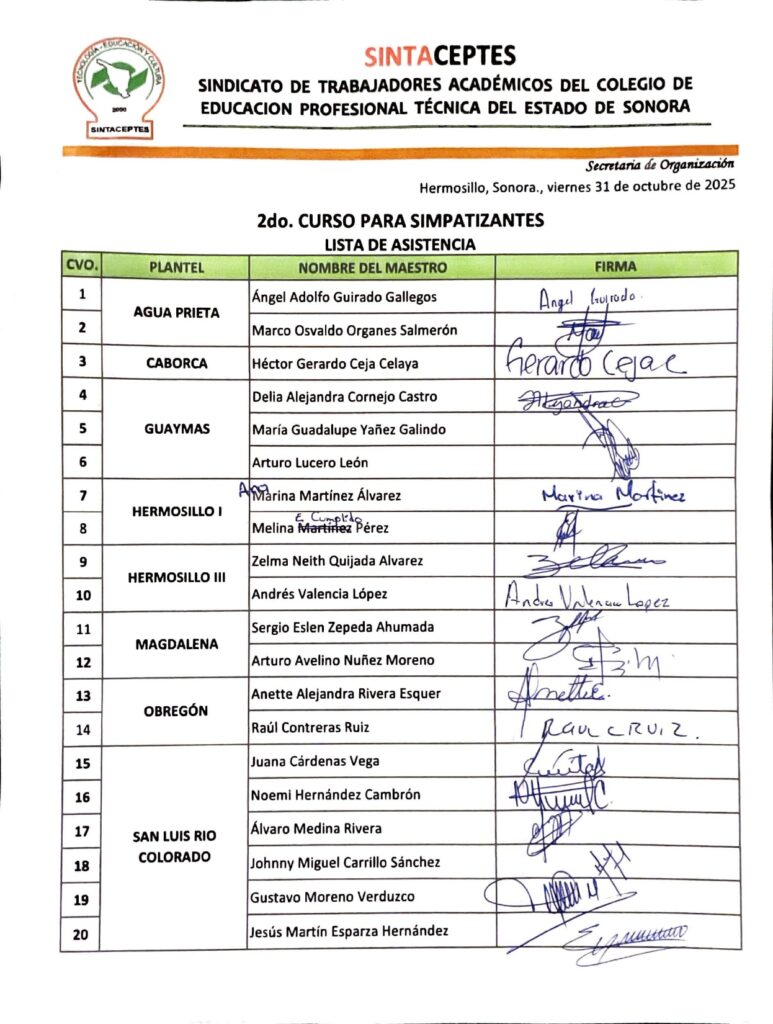 TECNOLOGÍA - EDUCACIÓN Y CULTURA
2000
SINTACEPTES
SINTACEPTES
SINDICATO DE TRABAJADORES ACADÉMICOS DEL COLEGIO DE
EDUCACION PROFESIONAL TÉCNICA DEL ESTADO DE SONORA
Secretaria de Organización
Hermosillo, Sonora., viernes 31 de octubre de 2025
2do. CURSO PARA SIMPATIZANTES
LISTA DE ASISTENCIA
CVO. PLANTEL NOMBRE DEL MAESTRO FIRMA
1 AGUA PRIETA Ángel Adolfo Guirado Gallegos Angel Guirado.
2 Marco Osvaldo Organes Salmerón
3 CABORCA Héctor Gerardo Ceja Celaya Gerardo Ceja C
4 GUAYMAS Delia Alejandra Cornejo Castro Alejandra C
5 María Guadalupe Yañez Galindo
6 Arturo Lucero León
7 HERMOSILLO I Ana Marina Martínez Álvarez Marina Martinez
8 Melina Martínez E. Cumplido Pérez
9 HERMOSILLO III Zelma Neith Quijada Alvarez
10 Andrés Valencia López Andres Valencia Lopez
11 MAGDALENA Sergio Eslen Zepeda Ahumada
12 Arturo Avelino Nuñez Moreno
13 OBREGÓN Anette Alejandra Rivera Esquer
14 Raúl Contreras Ruiz RAUL C RUIZ.
15 SAN LUIS RIO COLORADO Juana Cárdenas Vega
16 Noemi Hernández Cambrón
17 Álvaro Medina Rivera
18 Johnny Miguel Carrillo Sánchez
19 Gustavo Moreno Verduzco
20 Jesús Martín Esparza Hernández